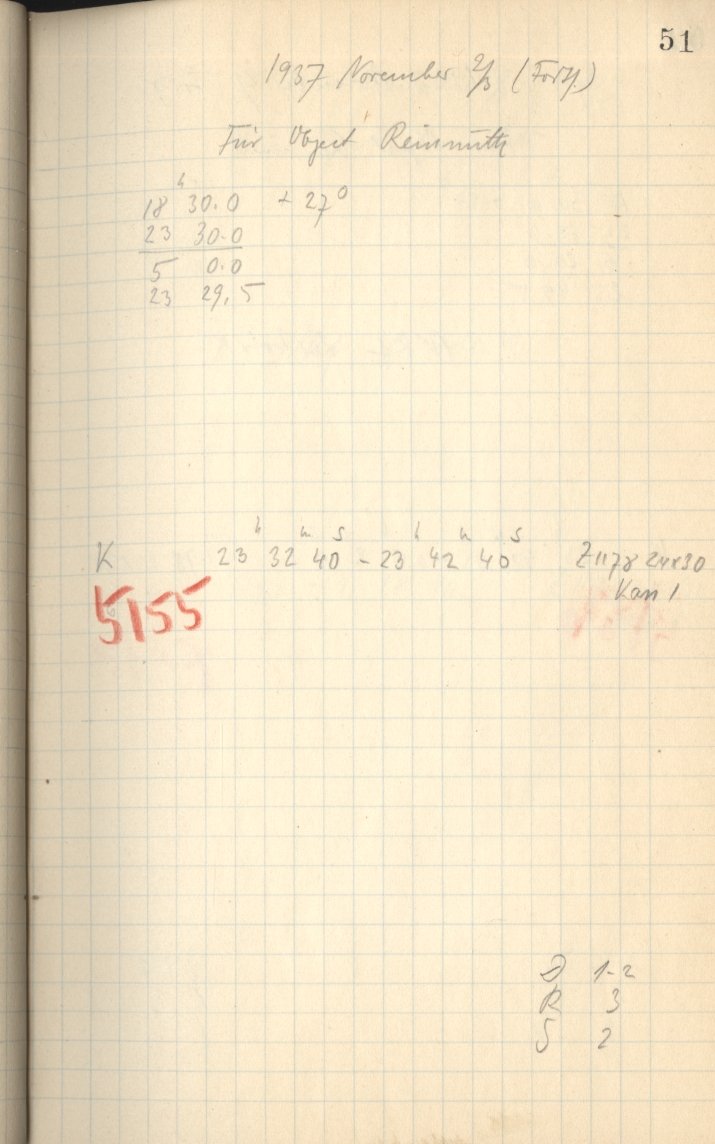 51
1937 November 2/3 (Forts.)
Für Object Reinmuth
18ʰ 30.0 + 27⁰
23 30.0
5 0.0
23 29,5
K 23ʰ 32ᵐ 40ˢ - 23ʰ 42ᵐ 40ˢ Z1178 24x30
5155 Kass 1
D 1-2
R 3
S 2